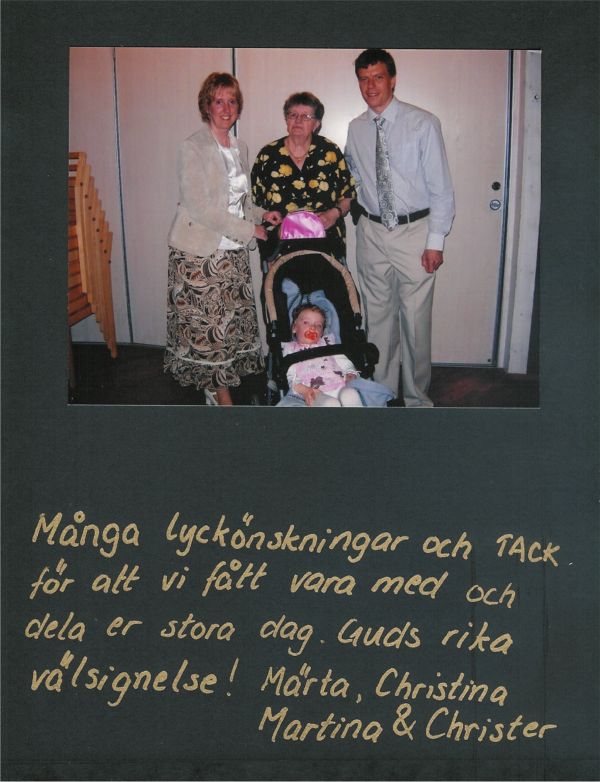 Många lyckönskningar och TACK
för att vi fått vara med och
dela er stora dag. Guds rika
välsignelse! Märta, Christina
Martina & Christer